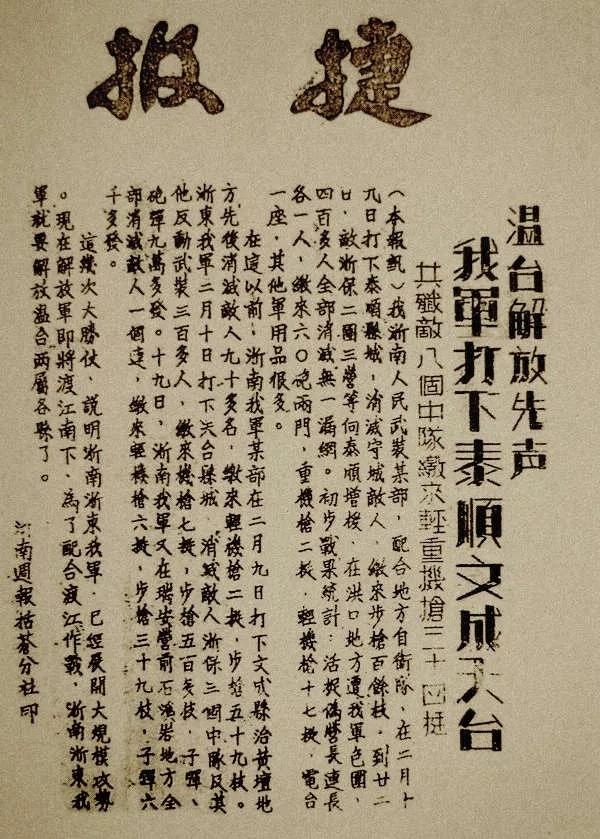 捷报
温台解放先声
我軍打下泰順文成天台
共殲敵八個中隊繳來輕重機搶三十四挺
（本報訊）我浙南人民武裝某部，配合地方自衛隊，在二月十
九日打下泰順縣城，消滅守城敵人，繳來步槍百餘枝。到廿二
日，敵浙保二團三營等向泰順增援，在洪口地方遭我軍包圍，
四百多人全部消滅無一漏網。初步戰果統計：活捉偽營長連長
各一人，繳來六〇砲兩門，重機槍二挺，輕機槍十七挺，電台
一座，其他軍用品很多。
在這以前，浙南我軍某部在二月九日打下文成縣治黃壇地
方先後消滅敵人九十多名，繳來輕機槍二挺，步槍五十九枝。
浙東我軍二月十日打下天台縣城，消滅敵人浙保三個中隊及其
他反動武裝三百多人，繳來機槍七挺，步槍五百多枝，子彈、
砲彈九萬多發。十九日，浙南我軍又在瑞安營前石滝岩地方全
部消滅敵人一個連，繳來輕機槍六挺，步槍三十九枝，子彈六
千多發。
這幾次大勝仗，説明浙南浙東我軍，已經展開大規模攻勢
。現在解放軍即將渡江南下，為了配合渡江作戰，浙南浙東我
軍就要解放温台兩屬各縣了。
浙南週報括蒼分社印